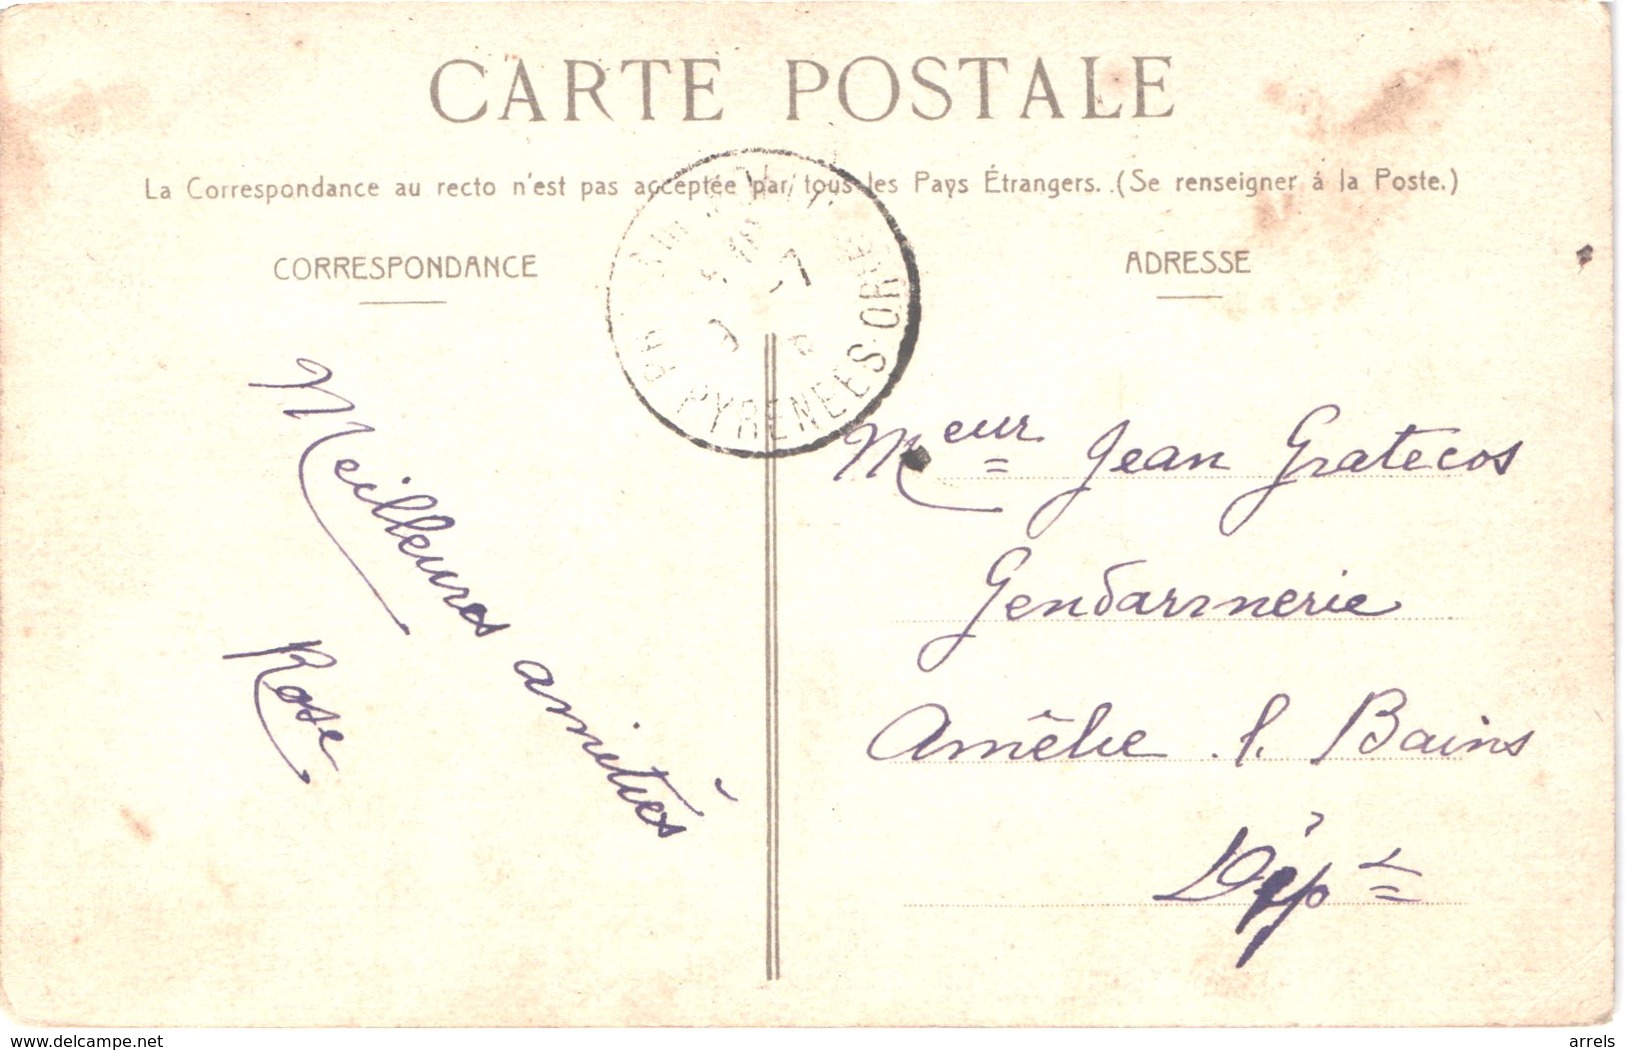 CARTE POSTALE
La Correspondance au recto n'est pas acceptée par tous les Pays Étrangers. (Se renseigner á la Poste.)
CORRESPONDANCE
Meilleures amitiés
Rose
PYRENEES ORles
ADRESSE
Meur Jean Gratecos
Gendarmerie
Amélie l. Bains
Dépt
www.delcampe.net
arrels